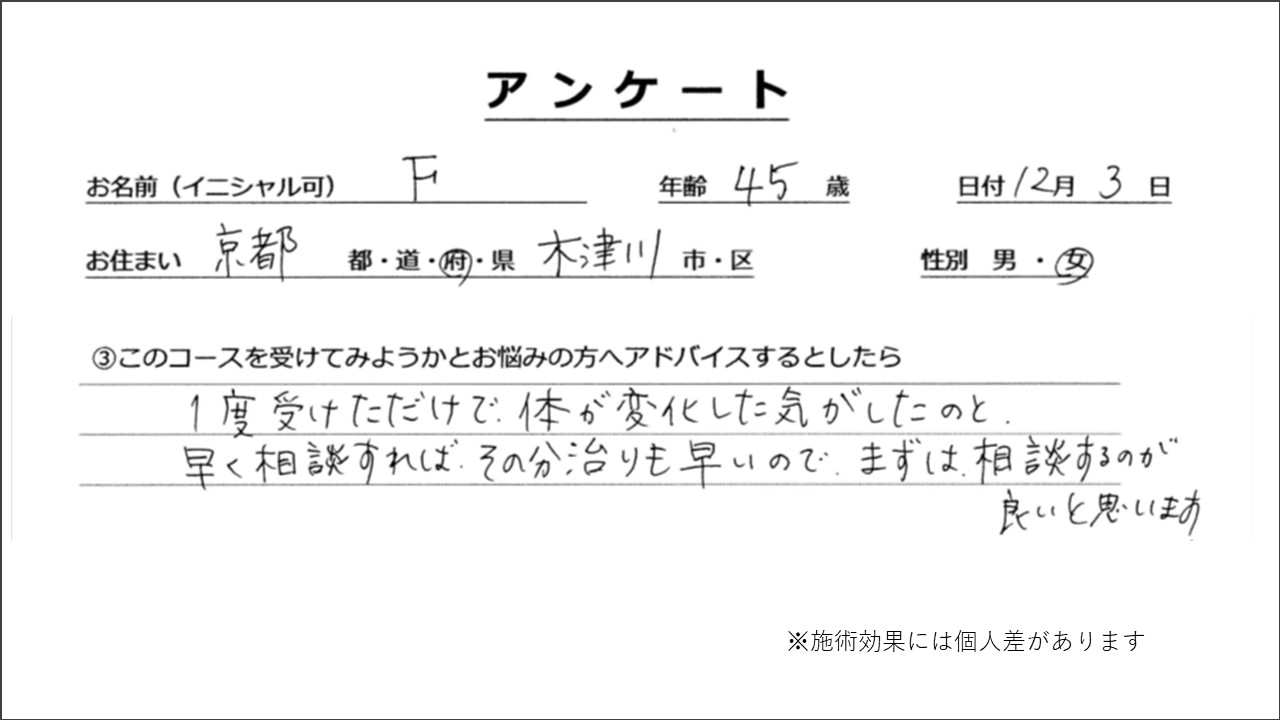 アンケート
お名前（イニシャル可） F 年齢 45 歳 日付 12月 3 日
お住まい 京都 都・道・府・県 木津川 市・区 性別 男・女
③このコースを受けてみようかとお悩みの方へアドバイスするとしたら
1度受けただけで、体が変化した気がしたのと、
早く相談すれば、その分治りも早いので、まずは、相談するのが
良いと思います
※施術効果には個人差があります